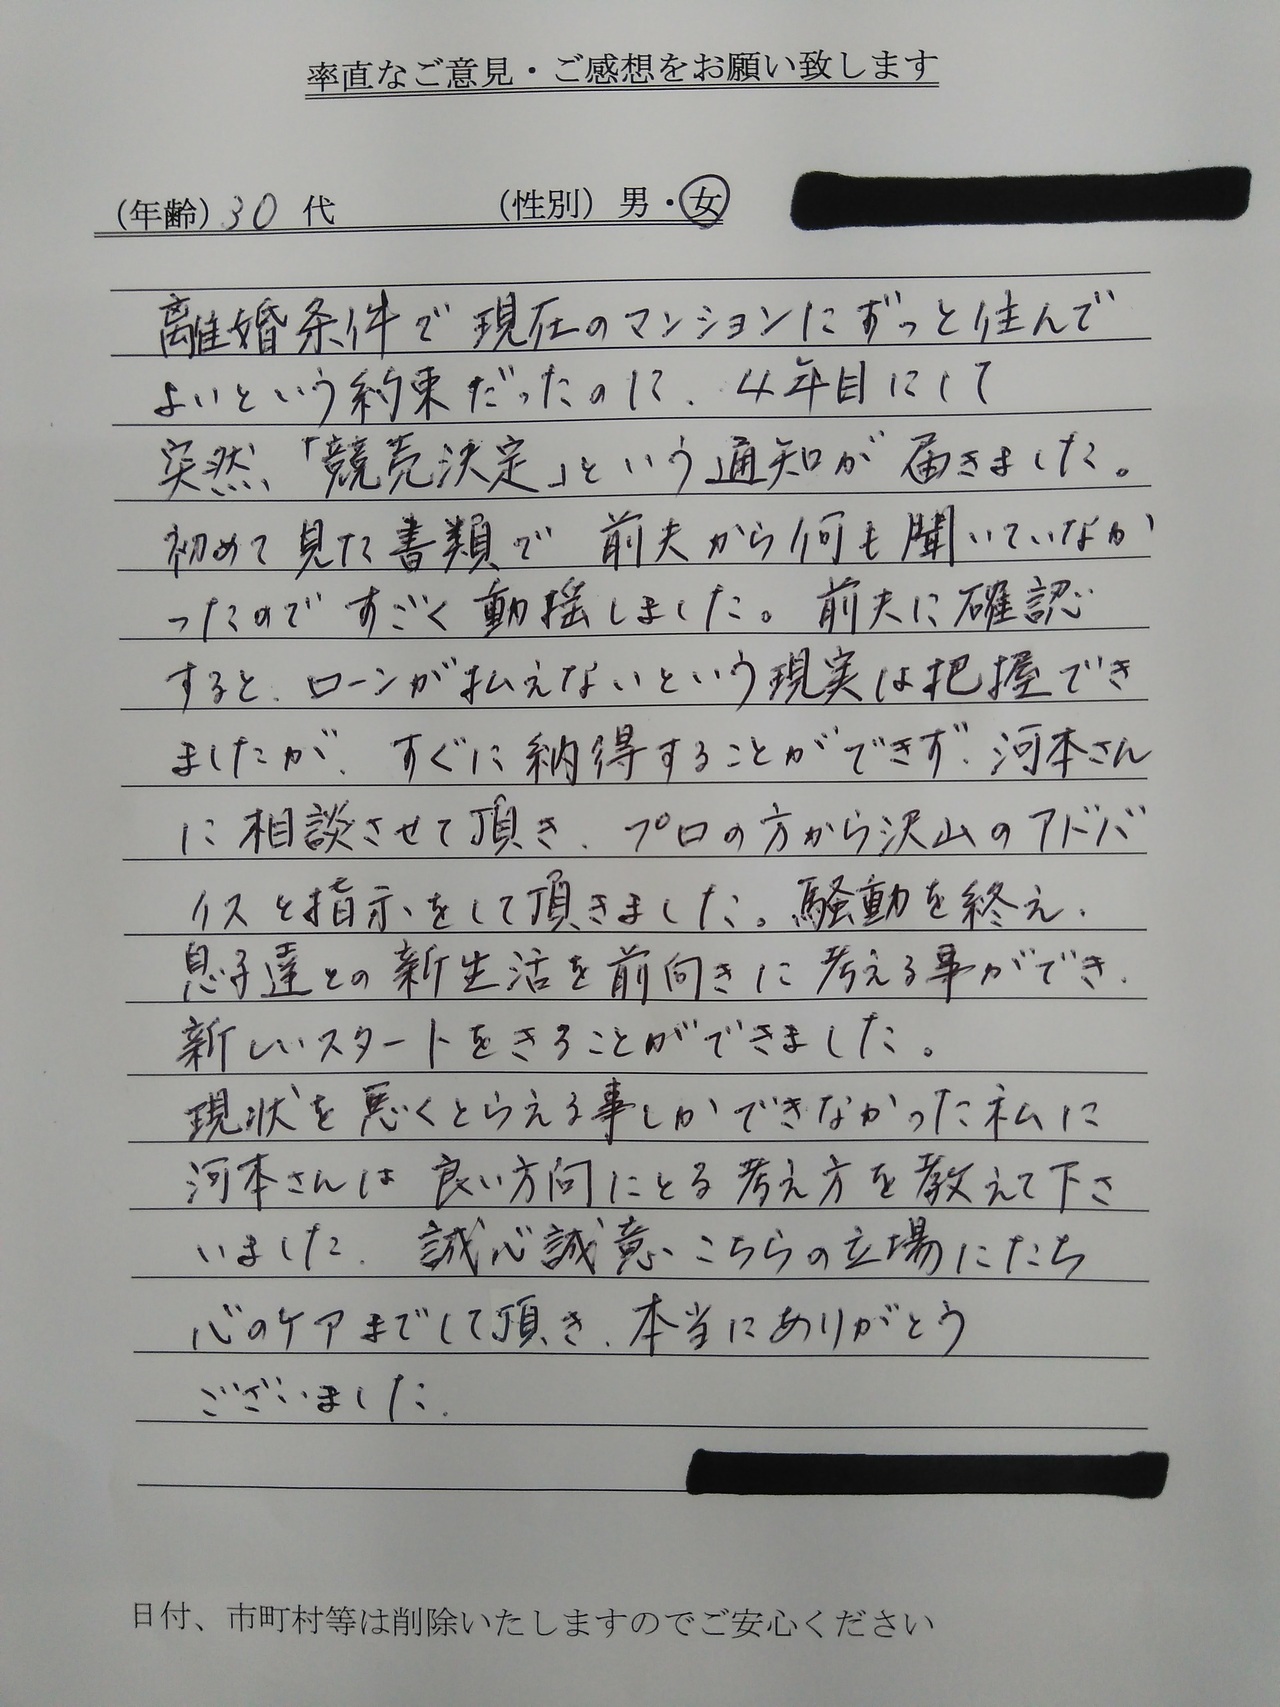 率直なご意見・ご感想をお願い致します
(年齢) 30 代 (性別) 男・女
離婚条件で現在のマンションにずっと住んで
よいという約束だったのに、4年目にして
突然、「競売決定」という通知が届きました。
初めて見た書類で前夫から何も聞いていなか
ったのですごく動揺しました。前夫に確認
すると、ローンが払えないという現実は把握でき
ましたが、すぐに納得することができず、河本さん
に相談させて頂き、プロの方から沢山のアドバ
イスと指示をして頂きました。騒動を終え、
息子達との新生活を前向きに考える事ができ、
新しいスタートをきることができました。
現状を悪くとらえる事しかできなかった私に
河本さんは良い方向にとる考え方を教えて下さ
いました。誠心誠意、こちらの立場にたち
心のケアまでして頂き、本当にありがとう
ございました。
日付、市町村等は削除いたしますのでご安心ください